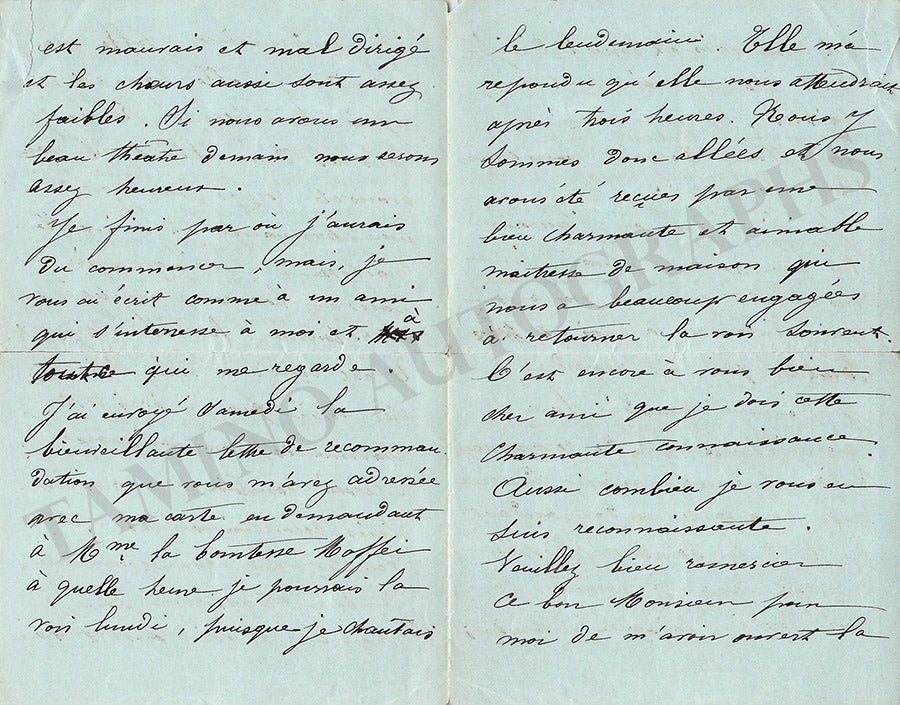 est mauvais et mal dirigé
et les chœurs aussi sont assez
faibles. Si nous avons un
beau théâtre demain nous serons
assez heureux.
Je finis par où j'aurais
du commencer, mais, je
vous ai écrit comme à un ami
qui s'interesse à moi et à
tout ce qui me regarde.
J'ai envoyé Samedi la
bienveillante lettre de recomman
dation que vous m'avez adressée
avec ma carte en demandant
à Mme la Comtesse Maffei
à quelle heure je pourrais la
voir lundi, puisque je chantais
le lendemain. Elle m'a
repondu qu'elle nous attendrait
après trois heures. Nous y
sommes donc allées et nous
avons été reçues par une
bien charmante et aimable
maitresse de maison qui
nous a beaucoup engagées
à retourner la voir souvent.
C'est encore à vous bien
cher ami que je dois cette
charmante connaissance.
Aussi combien je vous en
suis reconnaissante.
Veuillez bien remercier
ce bon Monsieur pour
moi de m'avoir ouvert la
TAMINO AUTOGRAPHS